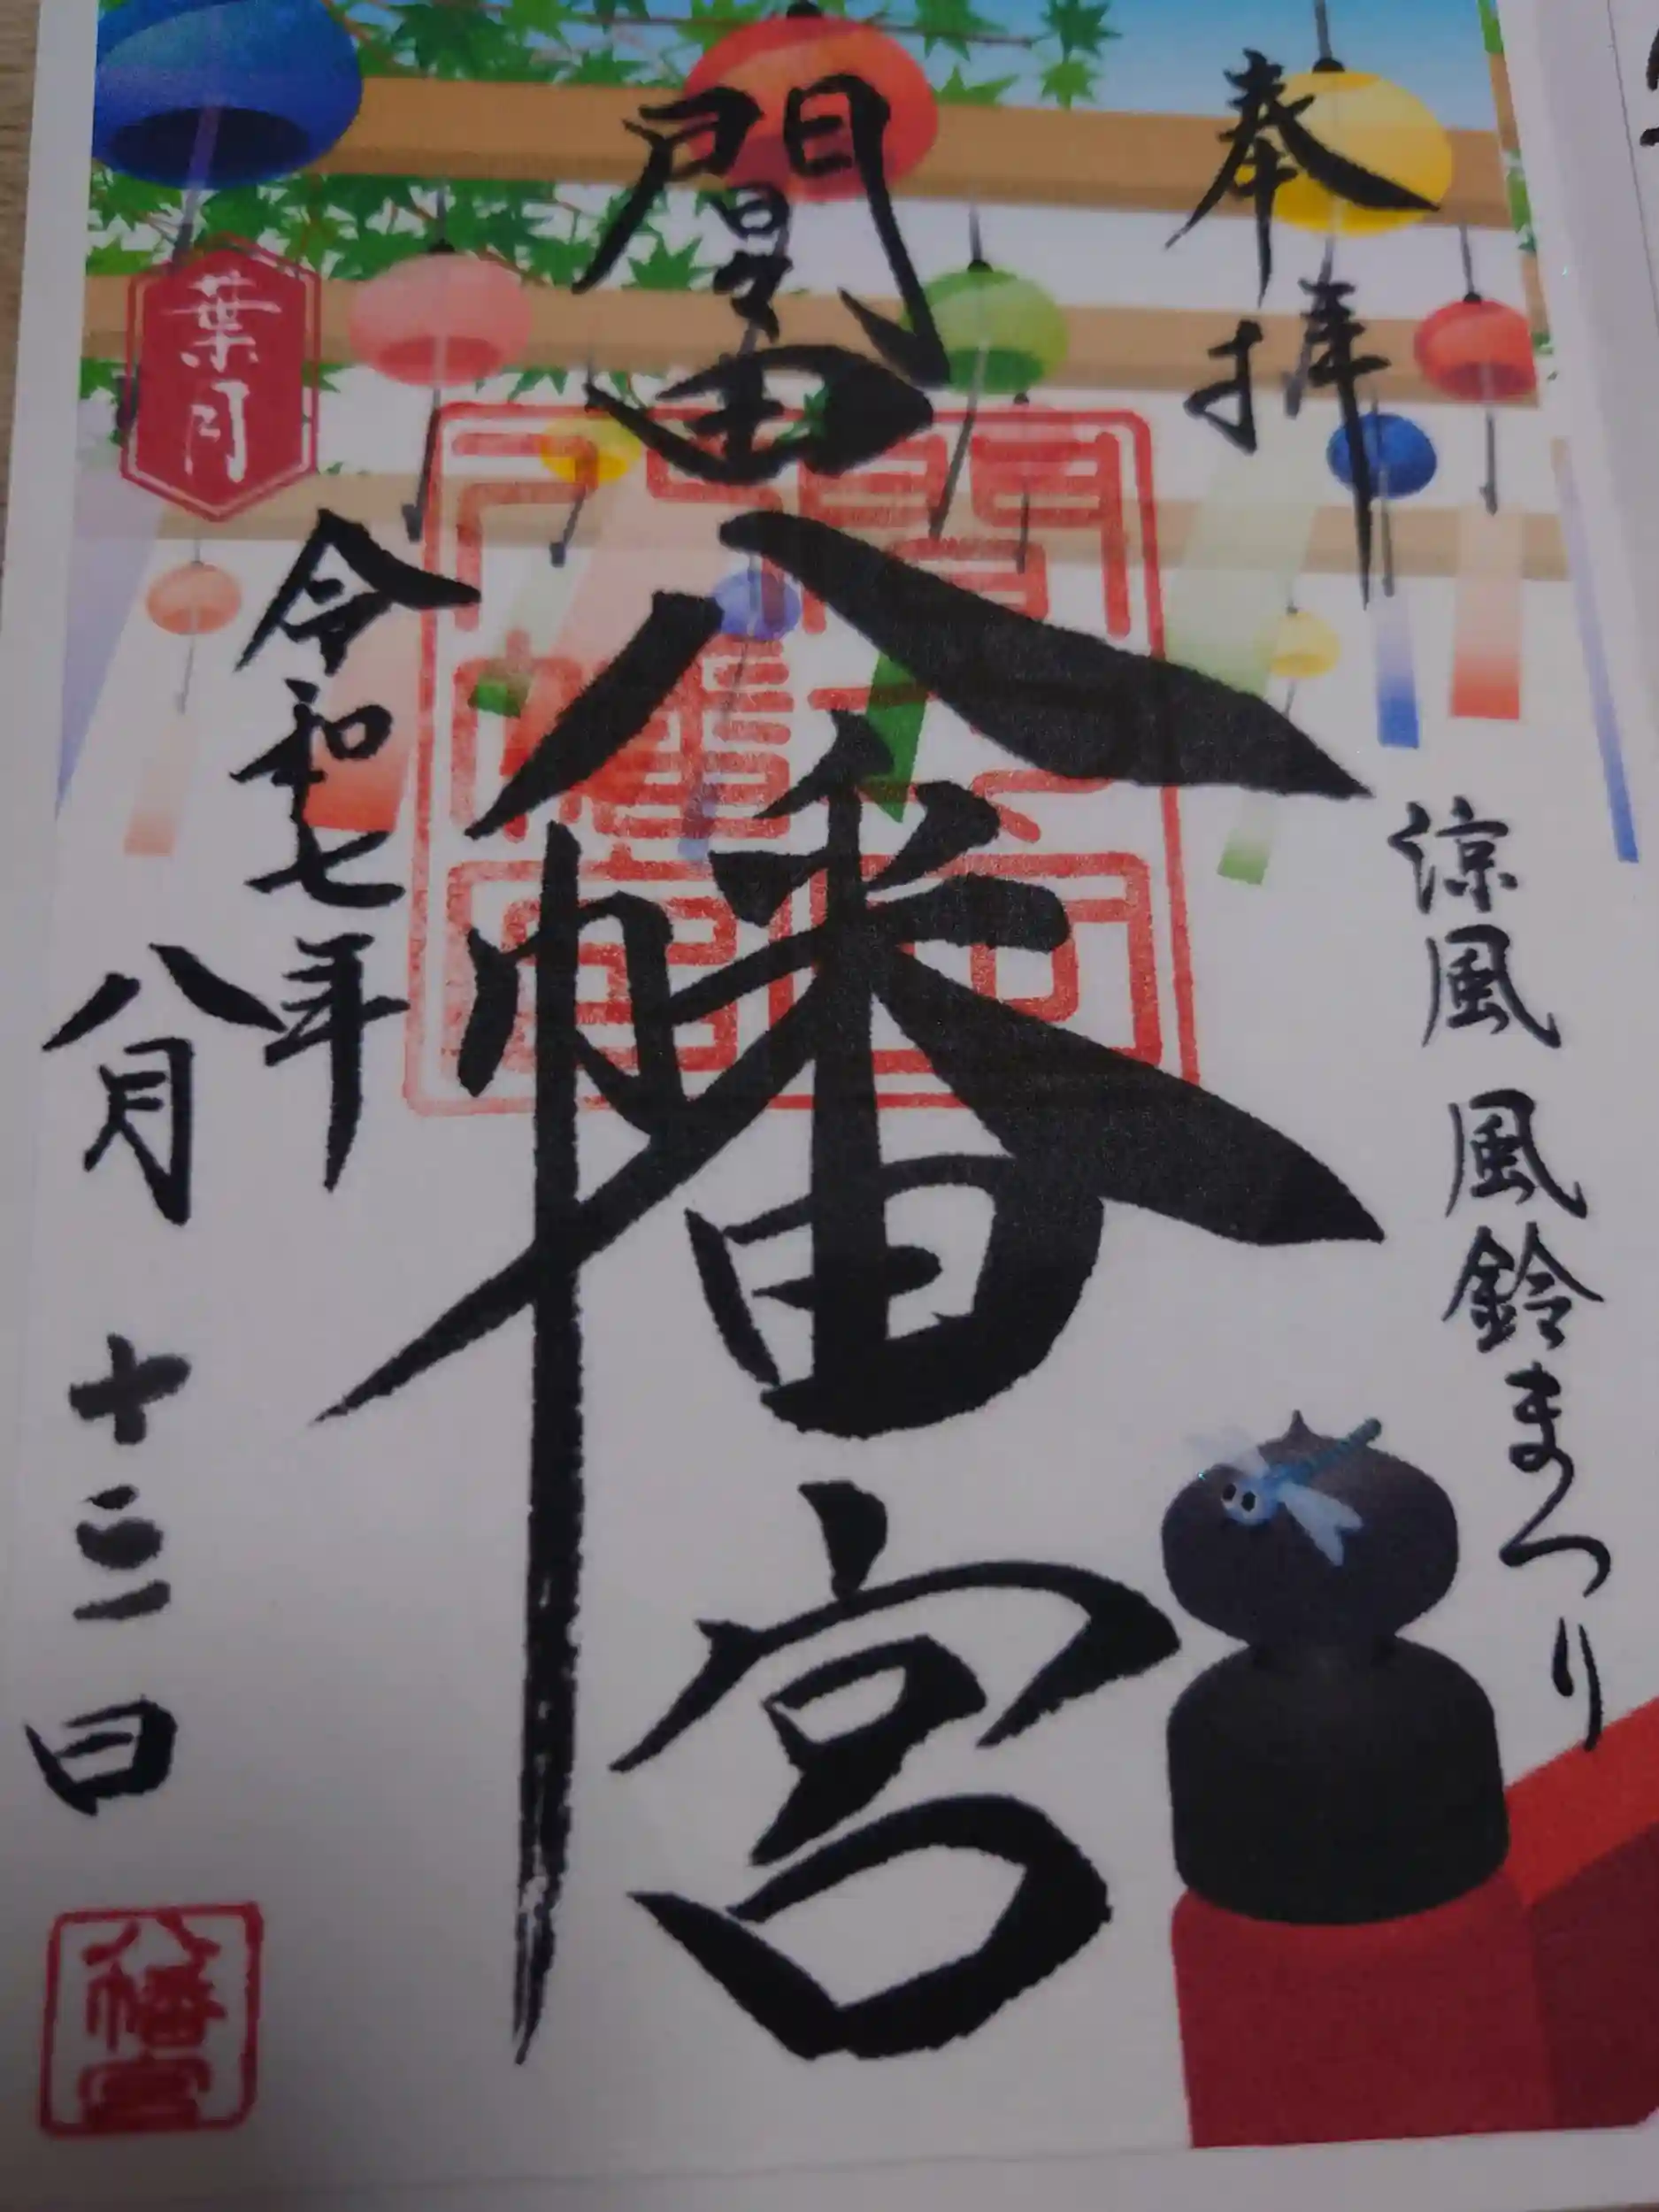 奉拝
涼風 風鈴まつり
間々田
八幡宮
葉月
令和七年
八月十三日
八幡宮